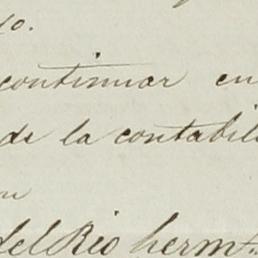 yo.
continuar en
de la contabili
on
del Rio herm